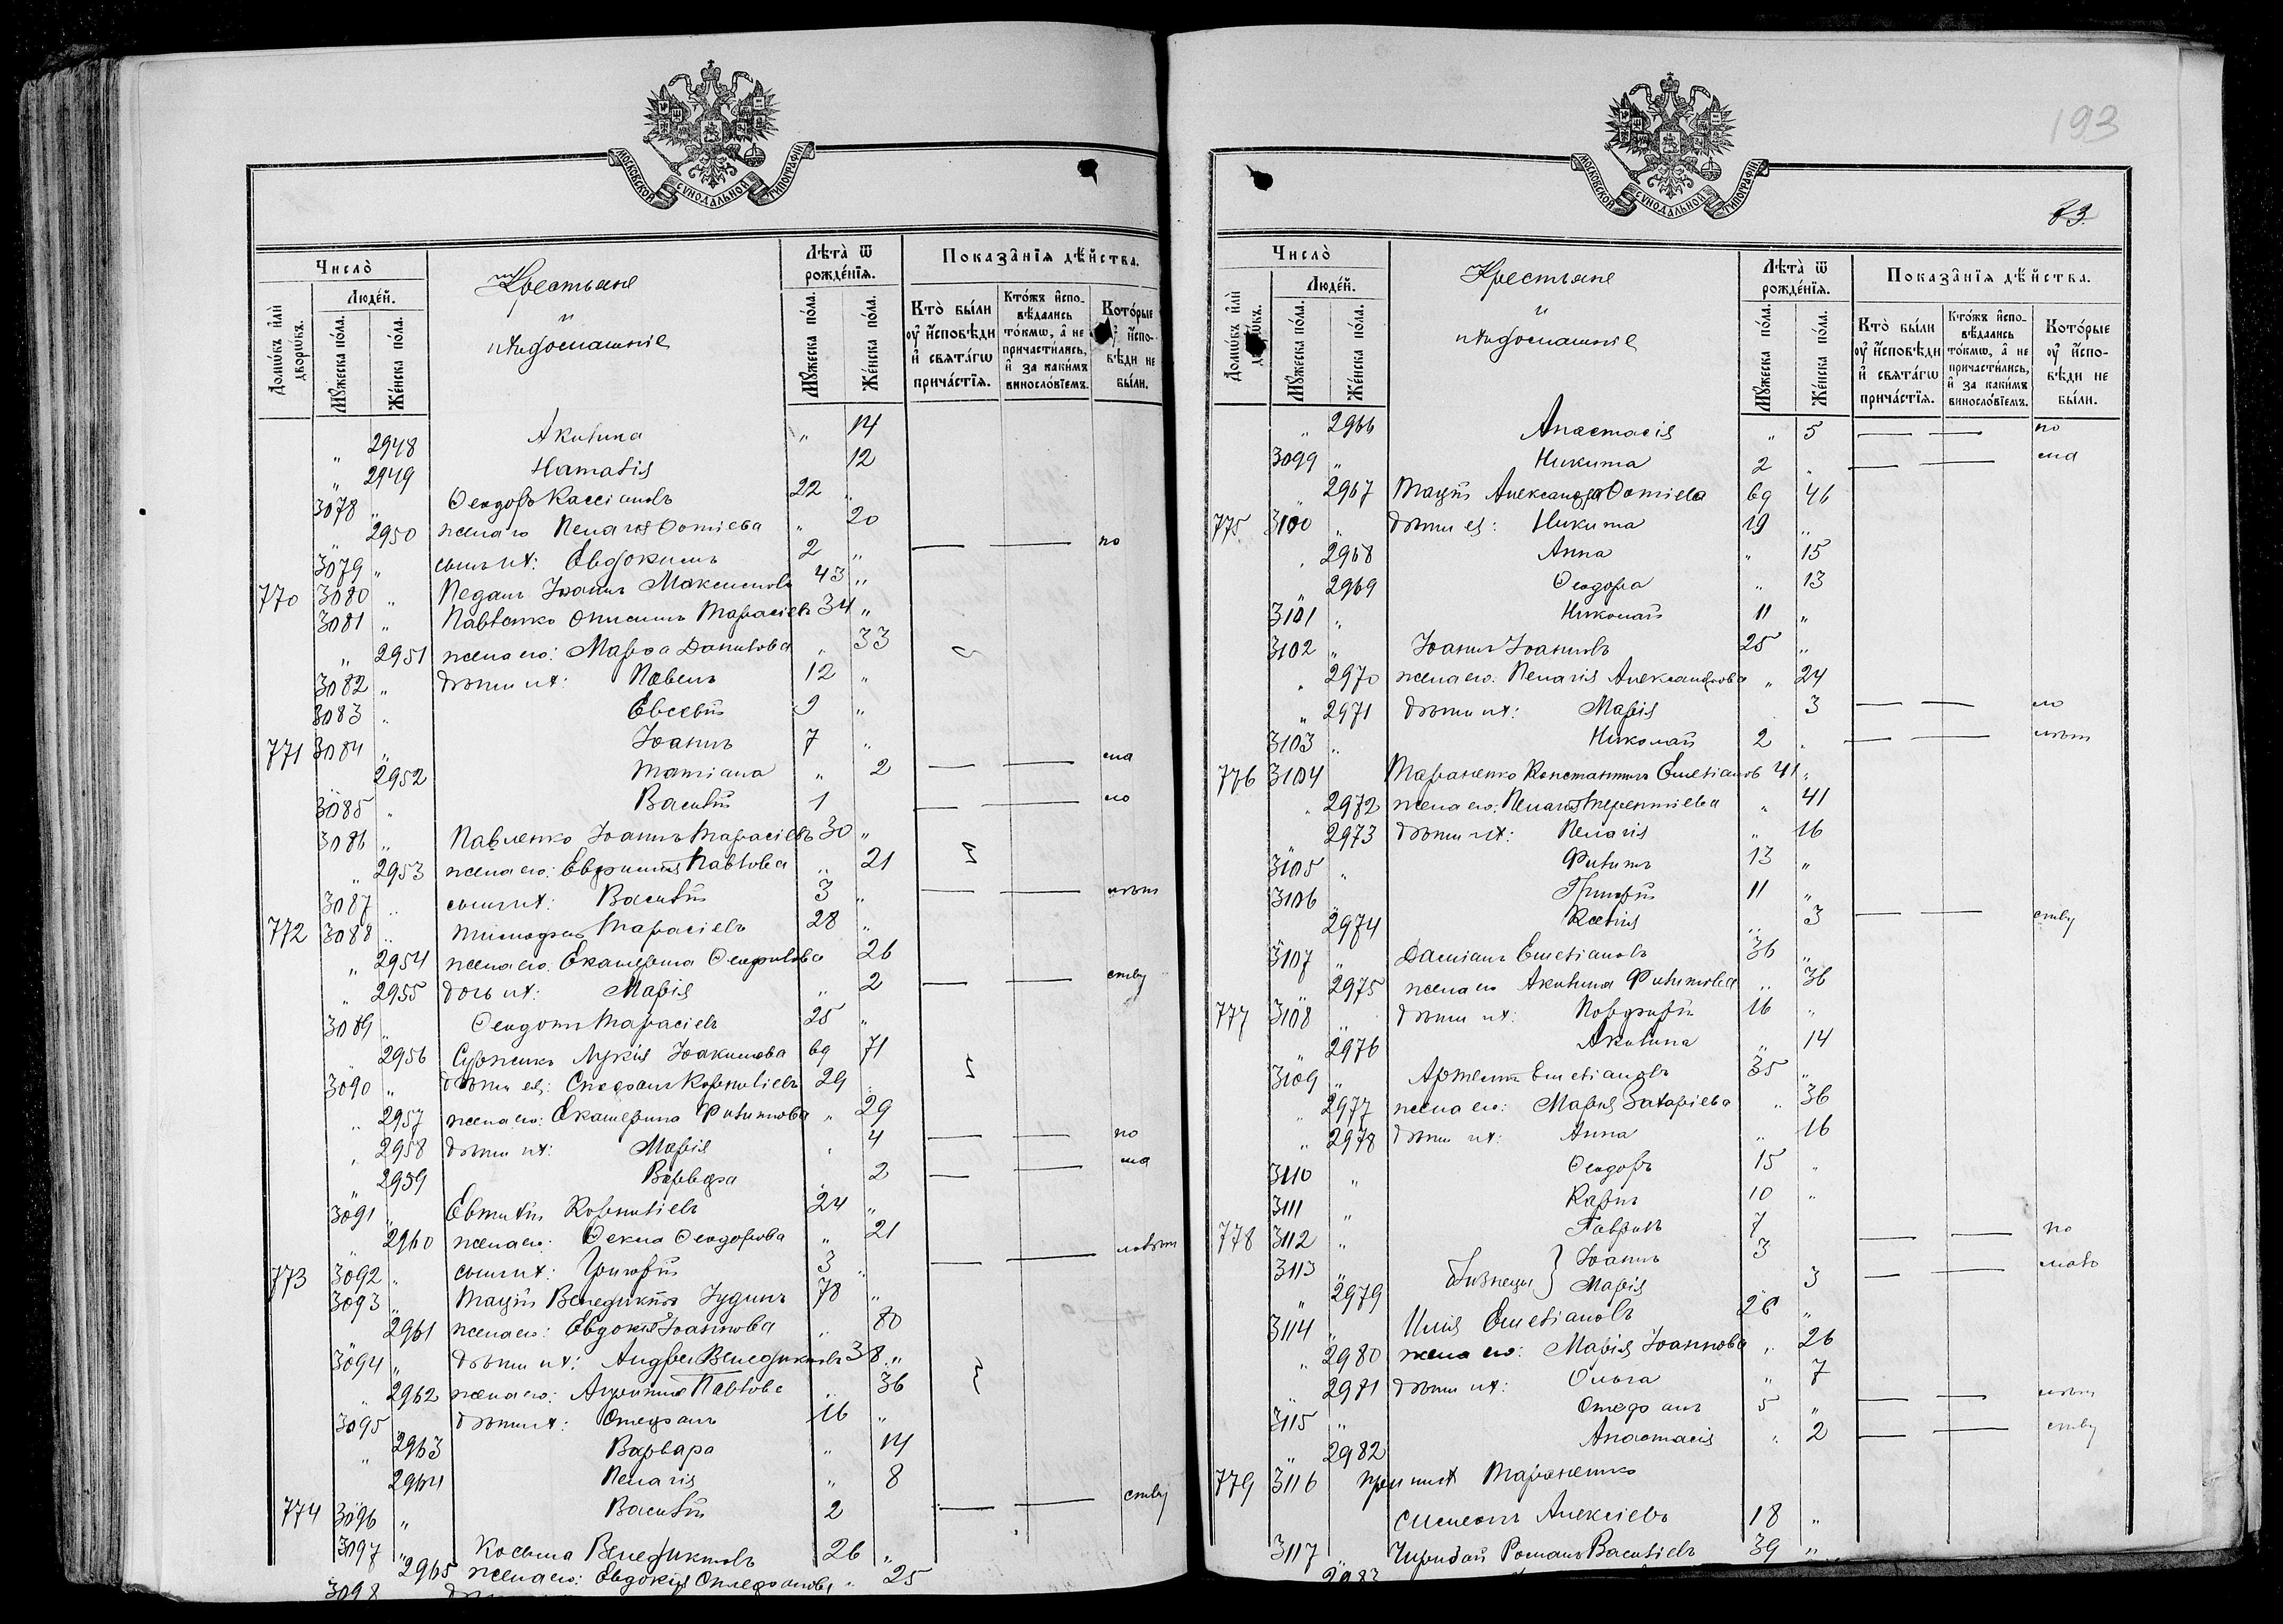 МОСКОВСКОЙ СУНОДАЛЬНОЙ ТИПОГРАФІИ
Число̀
Людей.
Домѡ́въ и҆лѝ дворѡ́въ.
Мꙋ́жеска по́ла.
Же́нска по́ла.
Крестьяне
и
ихъ домашніе
Лѣта̀ ѿ рожде́нїѧ.
Мꙋ́жеска по́ла.
Же́нска по́ла.
Показа̂нїѧ дѣ́йства.
Кто̀ бы́ли ᲂу҆ и҆́сповѣди и҆ свѧта́гѡ прича́стїѧ.
Кто́жъ и҆спо-вѣ́дались то́кмѡ, а҆ не причасти́лись, и҆ за каки́мъ виносло́вїемъ.
Кото́рые ᲂу҆ и҆спо-вѣди не бы́ли.
„ 2948 Акилина „ 14
„ 2949 Наталія 12
3078 „ Ѳеодоръ Кассіановъ 22 „
„ 2950 жена его Пелагія Ѳотіева „ 20
3079 „ сынъ ихъ: Евдокимъ 2 „ — — по
770 3080 „ Іоаннъ Максимовъ 43 „
3081 „ Павленко Онисимъ Тарасіевъ 34 „
„ 2951 жена его: Марѳа Данилова „ 33
3082 „ дѣти ихъ: Павелъ 12 „
3083 „ Евсевій 9 „
771 3084 „ Іоаннъ 7 „
2952 Татіана „ 2 — — ма
3085 „ Василій 1 — — ло
3086 „ Павленко Іоаннъ Тарасіевъ 30 „
„ 2953 жена его: Евфимія Павлова „ 21
3087 „ сынъ ихъ: Василій 3 „ — — лѣт
772 3088 „ Тимофей Тарасіевъ 28 „
„ 2954 жена его Екатерина Ѳеофилова 26
„ 2955 дочь ихъ: Марія „ 2 — — ству
3089 „ Ѳеодотъ Тарасіевъ 25 „
„ 2956 Лукія Іоакимова вд 71
3090 „ дѣти ея: Стефанъ Корниліевъ 29 „
„ 2957 жена его: Екатерина Филиппова „ 29
„ 2958 дѣти ихъ: Марія „ 4 — — по
„ 2959 Варвара 2 — — ма
3091 „ Евтихій Корниліевъ 24 „
„ 2960 жена его: Ѳекла Ѳеодорова „ 21
773 3092 „ сынъ ихъ: Григорій 3 „ — — лолѣт
3093 „ Мацій Венедиктъ Іудинъ 78 „
„ 2961 жена его: Евдокія Іоаннова „ 80
3094 „ дѣти ихъ: Андрей Венедиктовъ 38 „
„ 2962 жена его: Агриппина Павлова „ 36
3095 „ дѣти ихъ: Стефанъ 16 „
„ 2963 Варвара „ 14
2964 Пелагія „ 8
774 3096 „ Василій 2 — — ству
3097 „ Косьма Венедиктовъ 26 „
2965 жена его: Евдокія Стефанова „ 25
3098
193
83
МОСКОВСКОЙ СУНОДАЛЬНОЙ ТИПОГРАФІИ
Число̀
Людей.
Домѡ́въ и҆лѝ дворѡ́въ.
Мꙋ́жеска по́ла.
Же́нска по́ла.
Крестьяне
и
ихъ домашніе
Лѣта̀ ѿ рожде́нїѧ.
Мꙋ́жеска по́ла.
Же́нска по́ла.
Показа̂нїѧ дѣ́йства.
Кто̀ бы́ли ᲂу҆ и҆́сповѣди и҆ свѧта́гѡ прича́стїѧ.
Кто́жъ и҆спо-вѣ́дались то́кмѡ, а҆ не причасти́лись, и҆ за каки́мъ виносло́вїемъ.
Кото́рые ᲂу҆ и҆спо-вѣди не бы́ли.
„ 2966 Анастасія „ 5 — — по
3099 „ Никита 2 „ — — ма
„ 2967 Мацій Александра Ѳотіева вд 46
775 3100 „ дѣти ея: Никита 19 „
„ 2968 Анна „ 15
„ 2969 Ѳеодора „ 13
3101 „ Николай 11 „
3102 „ Іоаннъ Іоанновъ 25 „
„ 2970 жена его: Пелагія Александрова „ 24
„ 2971 дѣти ихъ: Марія 3 — — ло
3103 „ Николай 2 „ — — лѣт
776 3104 Тараненко Константинъ Емеліановъ 41 „
„ 2972 жена его: Пелагія Терентіева „ 41
„ 2973 дѣти ихъ: Пелагія „ 16
3105 „ Филиппъ 13 „
3106 „ Григорій 11 „
2974 Ксенія „ 3 — — ству
3107 „ Даміанъ Емеліановъ 36 „
„ 2975 жена его Акилина Филиппова „ 36
777 3108 „ дѣти ихъ: Порфирій 16 „
„ 2976 Акилина „ 14
3109 „ Артемій Емеліановъ 35 „
„ 2977 жена его: Марія Захаріева „ 36
„ 2978 дѣти ихъ: Анна „ 16
3110 „ Ѳеодоръ 15 „
3111 „ Карпъ 10 „
778 3112 „ Гавріилъ 7 — — по
3113 „ близнецы } Іоаннъ 3 — — мало
„ 2979 Марія 3
3114 „ Илія Емеліановъ 26 „
„ 2980 жена его: Марія Іоаннова „ 26
„ 2971 дѣти ихъ: Ольга „ 7
3115 „ Стефанъ 5 „ — — лѣт
„ 2982 Анастасія „ 2 — — ству
779 3116 Тараненко
Симеонъ Алексіевъ 18 „
3117 Романъ Василіевъ 39 „
2983